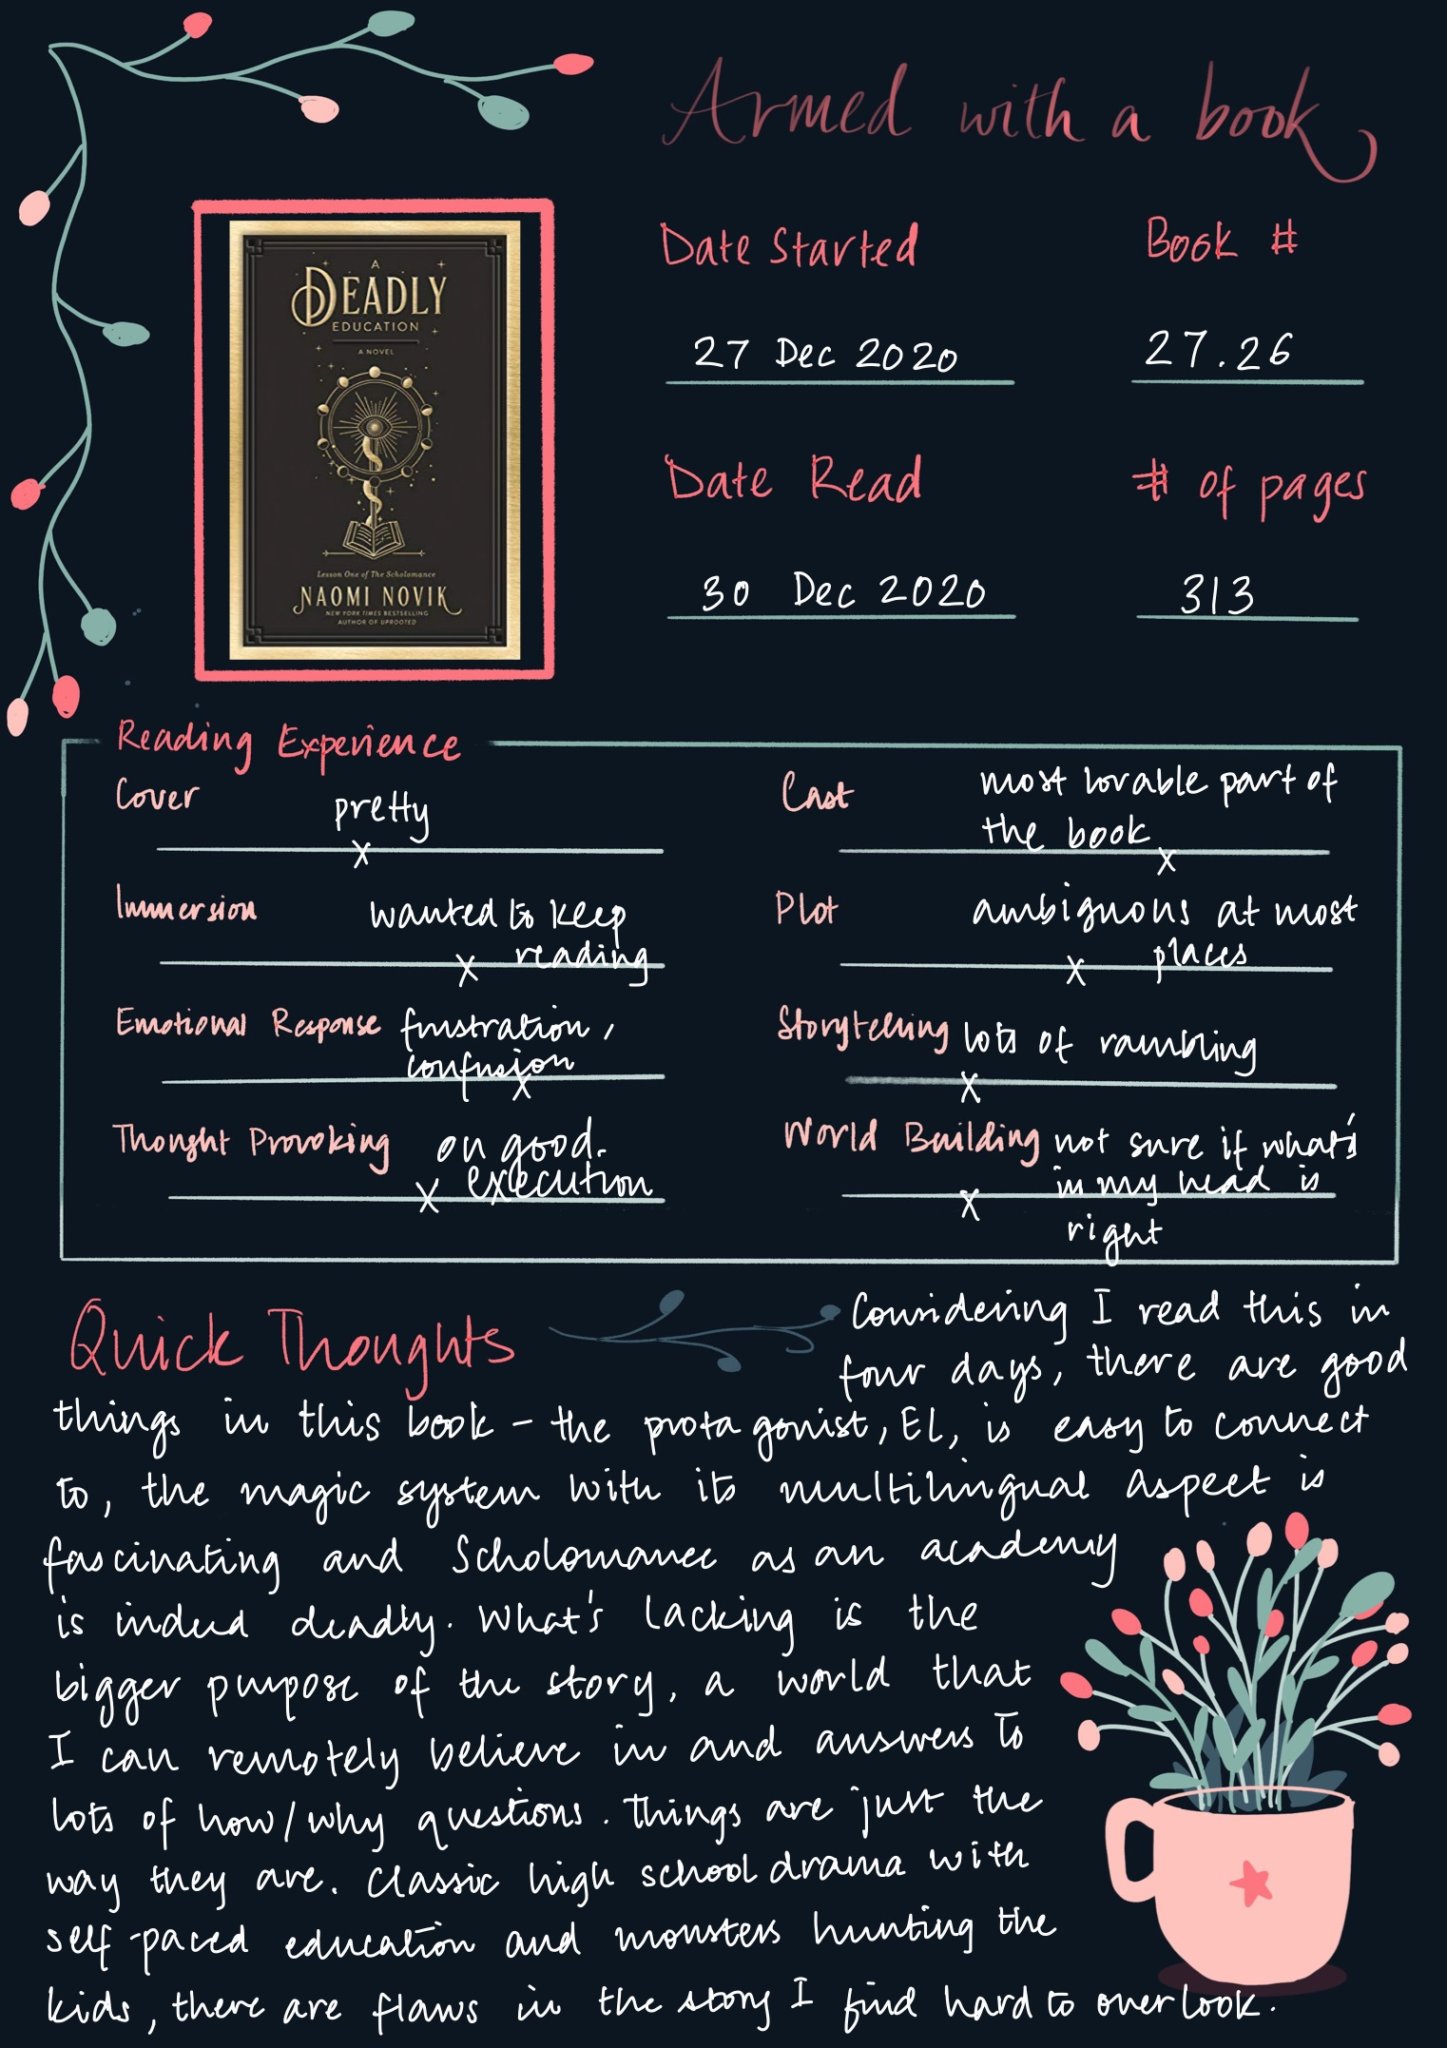 Armed with a book
A
DEADLY
EDUCATION
A NOVEL
Lesson One of The Scholomance
NAOMI NOVIK
NEW YORK TIMES BESTSELLING
AUTHOR OF UPROOTED
Date Started
27 Dec 2020
Book #
27.26
Date Read
30 Dec 2020
# of pages
313
Reading Experience
Cover
pretty
X
Cast
most lovable part of
the book
X
Immersion
wanted to keep
reading
X
Plot
ambiguous at most
places
X
Emotional Response
frustration,
confusion
X
Storytelling
lots of rambling
X
Thought Provoking
on good.
execution
X
World Building
not sure if what's
in my head is
right
X
Quick Thoughts
Considering I read this in
four days, there are good
things in this book - the protagonist, El, is easy to connect
to, the magic system with its multilingual aspect is
fascinating and Scholomance as an academy
is indeed deadly. What's lacking is the
bigger purpose of the story, a world that
I can remotely believe in and answers to
lots of how/why questions. Things are just the
way they are. Classic high school drama with
self-paced education and monsters hunting the
kids, there are flaws in the story I find hard to overlook.